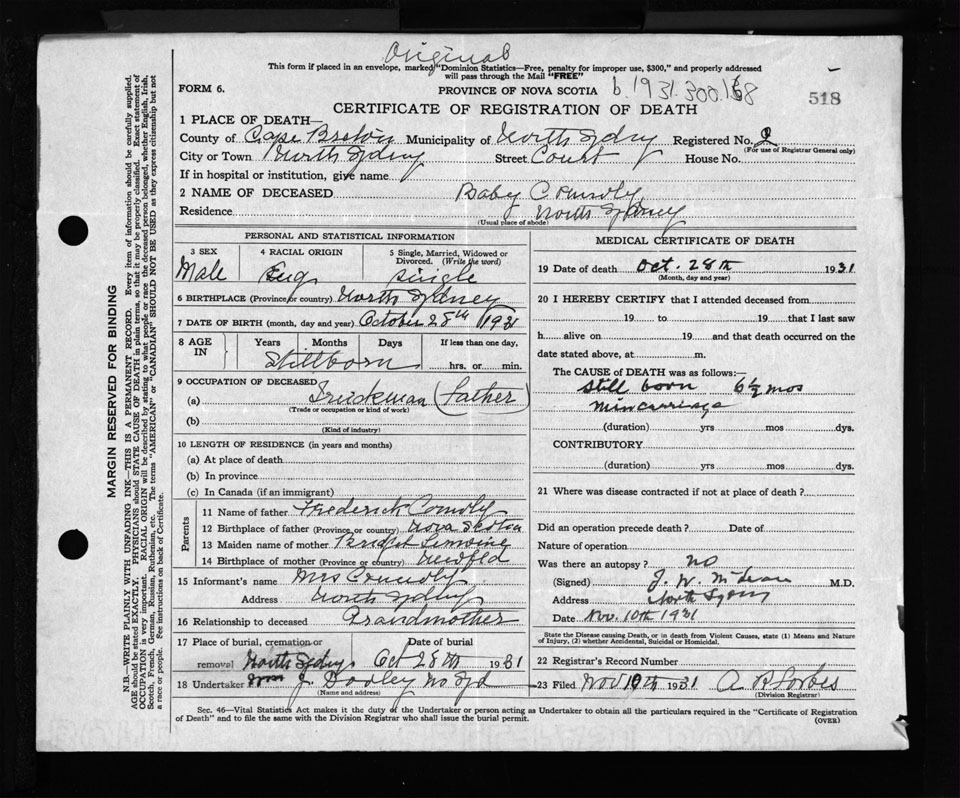 Original
This form if placed in an envelope, marked "Dominion Statistics—Free, penalty for improper use, $300," and properly addressed
will pass through the Mail "FREE"
FORM 6.
PROVINCE OF NOVA SCOTIA
b. 1931.300.168
518
CERTIFICATE OF REGISTRATION OF DEATH
1 PLACE OF DEATH—
County of Cape Breton Municipality of North Sydney Registered No.
(For use of Registrar General only)
City or Town North Sydney Street Court House No.
If in hospital or institution, give name
2 NAME OF DECEASED Baby Connoly
Residence North Sydney
(Usual place of abode)
PERSONAL AND STATISTICAL INFORMATION
3 SEX
Male
4 RACIAL ORIGIN
Eng
5 Single, Married, Widowed or
Divorced. (Write the word)
single
6 BIRTHPLACE (Province or country) North Sydney
7 DATE OF BIRTH (month, day and year) October 28th 1931
8 AGE
IN
Years Months Days
If less than one day,
Stillborn
hrs. or min.
9 OCCUPATION OF DECEASED
(a) Truckman (Father)
(Trade or occupation or kind of work)
(b)
(Kind of industry)
10 LENGTH OF RESIDENCE (in years and months)
(a) At place of death
(b) In province
(c) In Canada (if an immigrant)
Parents
11 Name of father Frederick Connoly
12 Birthplace of father (Province or country) Nova Scotia
13 Maiden name of mother Bridget
14 Birthplace of mother (Province or country) Newfld
15 Informant's name Mrs Connoly
Address North Sydney
16 Relationship to deceased Grandmother
17 Place of burial, cremation or
removal North Sydney
Date of burial
Oct 28th 1931
18 Undertaker J. Dooley No Syd
(Name and address)
MEDICAL CERTIFICATE OF DEATH
19 Date of death Oct. 28th 1931
(Month, day and year)
20 I HEREBY CERTIFY that I attended deceased from
19 to 19 that I last saw
h alive on 19 and that death occurred on the
date stated above, at m.
The CAUSE OF DEATH was as follows:—
Still born 6½ mos
Miscarriage
(duration) yrs mos dys.
CONTRIBUTORY
(duration) yrs mos dys.
21 Where was disease contracted if not at place of death?
Did an operation precede death? Date of
Nature of operation
Was there an autopsy? No
(Signed) J. W. McLean M.D.
Address North Sydney
Date Nov. 10th 1931
State the Disease causing Death, or in death from Violent Causes, state (1) Means and Nature
of Injury, (2) whether Accidental, Suicidal or Homicidal.
22 Registrar's Record Number
23 Filed Nov 10th 1931 A R Forbes
(Division Registrar)
Sec. 46—Vital Statistics Act makes it the duty of the Undertaker or person acting as Undertaker to obtain all the particulars required in the "Certificate of Registration
of Death" and to file the same with the Division Registrar who shall issue the burial permit.
(OVER)
MARGIN RESERVED FOR BINDING
N.B.—WRITE PLAINLY WITH UNFADING INK—THIS IS A PERMANENT RECORD. Every item of information should be carefully supplied.
AGE should be stated EXACTLY. PHYSICIANS should STATE CAUSE OF DEATH in plain terms, so that it may be properly classified. Exact statement of
OCCUPATION is very important. RACIAL ORIGIN will be described by stating to what people or race the deceased person belonged, whether English, Irish,
Scotch, French, German, Russian, Ruthenian, etc. The terms "AMERICAN" or "CANADIAN" SHOULD NOT BE USED as they express citizenship but not
a race or people. See instructions on back of Certificate.